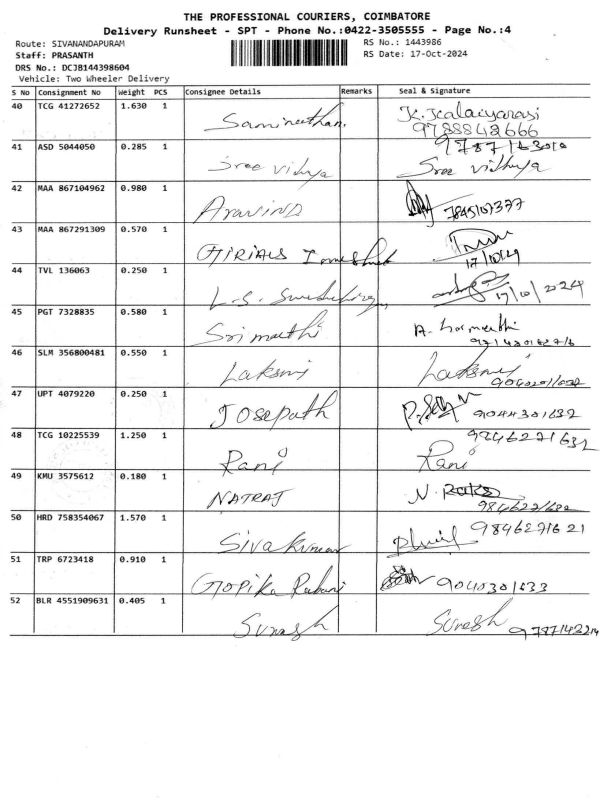 THE PROFESSIONAL COURIERS, COIMBATORE
Delivery Runsheet - SPT - Phone No.:0422-3505555 - Page No.:4
Route: SIVANANDAPURAM
Staff: PRASANTH
DRS No.: DCJB144398604
Vehicle: Two Wheeler Delivery
RS No.: 1443986
RS Date: 17-Oct-2024
S No Consignment No Weight PCS Consignee Details Remarks Seal & Signature
40 TCG 41272652 1.630 1 K. Kalaiyarasi
9788842666
41 ASD 5044050 0.285 1 Sree vidya Sree vidhya
42 MAA 867104962 0.980 1 Aravind
43 MAA 867291309 0.570 1 17/10/24
44 TVL 136063 0.250 1 L.S. 17/10/2024
45 PGT 7328835 0.580 1 Srimathi A.
46 SLM 356800481 0.550 1 Laksmi Laksmi
47 UPT 4079220 0.250 1 Josepath 9044301632
48 TCG 10225539 1.250 1 Rani 9846271632
Rani
49 KMU 3575612 0.180 1 NATRAJ N.
50 HRD 758354067 1.570 1 Sivakumar 9846271621
51 TRP 6723418 0.910 1 Gopika 9040301633
52 BLR 4551909631 0.405 1 Suresh Suresh